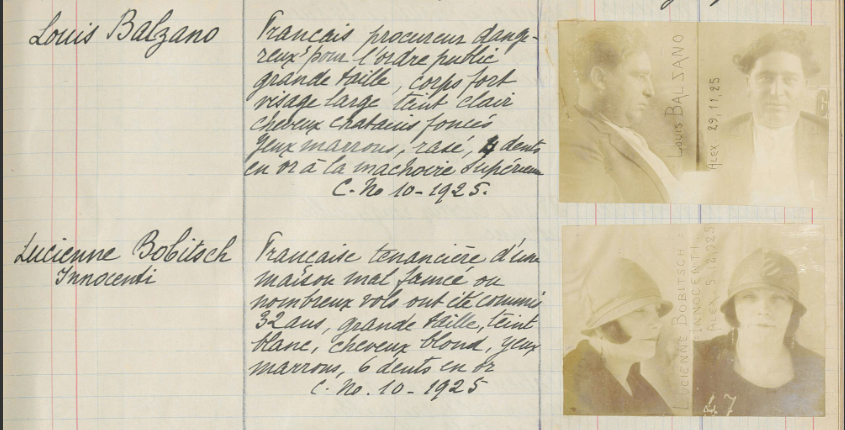 Louis Balzano
Français procureur dange-
reux pour l'ordre public
grande taille, corps fort
visage large teint clair
cheveux chatains foncés
yeux marrons, rasé, 4 dents
en or à la machoire supérieure
C. No 10-1925.
LOUIS BALZANO
ALEX 29,11,25
Lucienne Bobitsch
Innocenti
Française tenancière d'une
maison mal famée ou
nombreux vols ont été commis
32 ans, grande taille, teint
blanc, cheveux blond, yeux
marrons, 6 dents en or
C. No. 10-1925
LUCIENNE BOBITSCH
INNOCENTI
ALEX
7